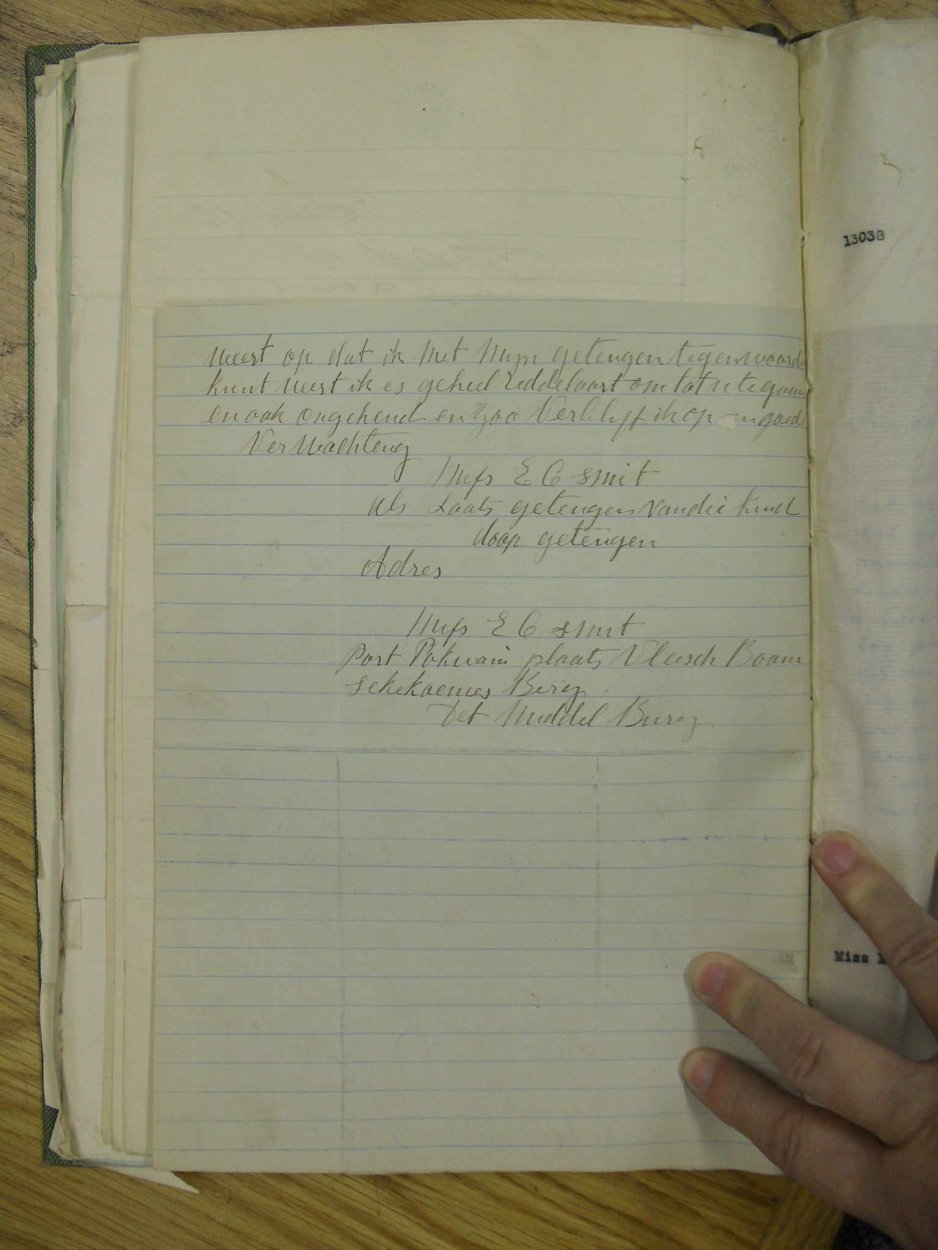 neert op dat ik met Mijn getengen tegenwoord
kunt neert ik es geheel riddelaart om tatu te gaan
en ook ongekend en zoo Verblijf ik op en goede
Verwachteng
Mifs E C Smit
als Laats getengen van die kind
doop getengen
Adres
Mifs E C Smit
Port Pokwani plaats Vleesch Boom
Sekekoenies Berg
Det Middel Burg
13038
Miss